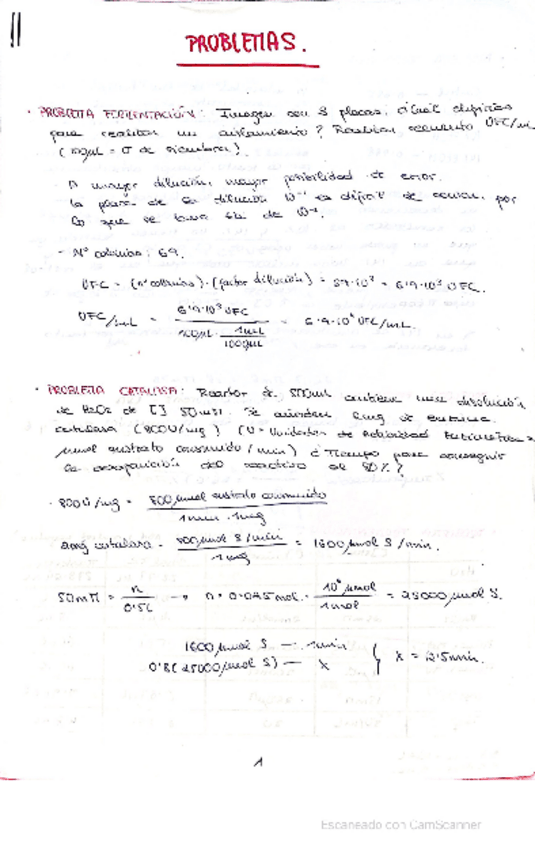 PROBLEMAS.
· PROBLEMA FERMENTACIÓN: Imagen con 3 placas, ¿Cuál elegirías
para realizar un aislamiento? Recuento UFC/mL
A mayor dilución, mayor posibilidad de error.
La placa de la dilución 10⁻¹ es difícil de contar, por
lo que se
- Nº colonias: 69.
UFC = (nº colonias) · (factor dilución) = 6'9·10³ UFC.
UFC/mL = 6'9·10³ UFC / 100µL · 1mL / 1000µL = 6'9·10⁴ UFC/mL.
· PROBLEMA CATALASA: Reactor de 500ml contiene una disolución
de H₂O₂ de [] 50mM. Se añaden 2mg de enzima
catalasa (800U/mg) (U = Unidades de Actividad Enzimática =
µmol sustrato consumido / min) ¿Tiempo para conseguir
la desaparición del reactivo al 80%?
· 800U/mg = 800µmol sustrato consumido / 1min · 1mg
2mg catalasa · 800µmol S/min / 1mg = 1600µmol S/min.
50mM = n / 0'5L → n = 0'025mol · 10⁶µmol / 1mol = 25000µmol S.
1600µmol S — 1min
0'8(25000µmol S) — x } x = 12'5min.
1
Escaneado con CamScanner